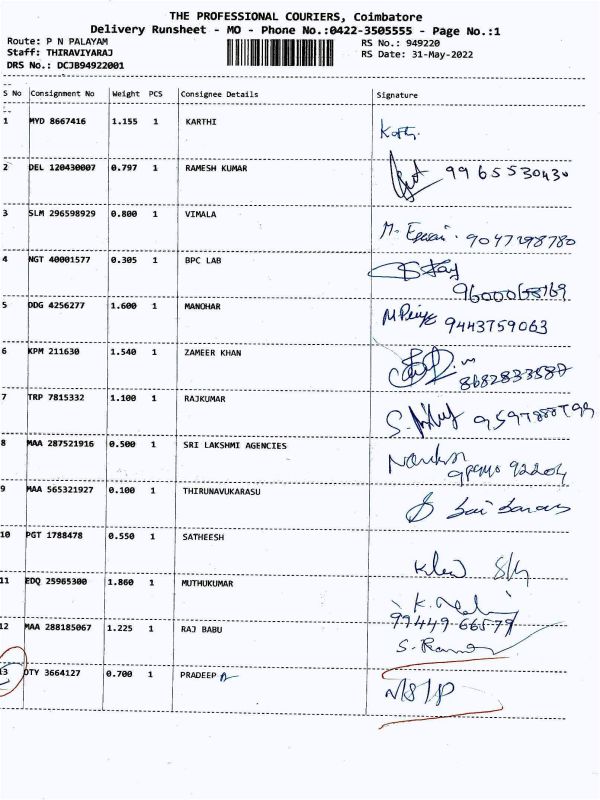 THE PROFESSIONAL COURIERS, Coimbatore
Delivery Runsheet - MO - Phone No.:0422-3505555 - Page No.:1
Route: P N PALAYAM
RS No.: 949220
Staff: THIRAVIYARAJ
RS Date: 31-May-2022
DRS No.: DCJB94922001
S No Consignment No Weight PCS Consignee Details Signature
1 MYD 8667416 1.155 1 KARTHI
2 DEL 120430007 0.797 1 RAMESH KUMAR 9965530430
3 SLM 296598929 0.800 1 VIMALA 9047298780
4 NGT 40001577 0.305 1 BPC LAB
5 DDG 4256277 1.600 1 MANOHAR 9443759063
6 KPM 211630 1.540 1 ZAMEER KHAN
7 TRP 7815332 1.100 1 RAJKUMAR
8 MAA 287521916 0.500 1 SRI LAKSHMI AGENCIES
9 MAA 565321927 0.100 1 THIRUNAVUKARASU
10 PGT 1788478 0.550 1 SATHEESH
11 EDQ 25965300 1.860 1 MUTHUKUMAR
12 MAA 288185067 1.225 1 RAJ BABU
13 OTY 3664127 0.700 1 PRADEEP